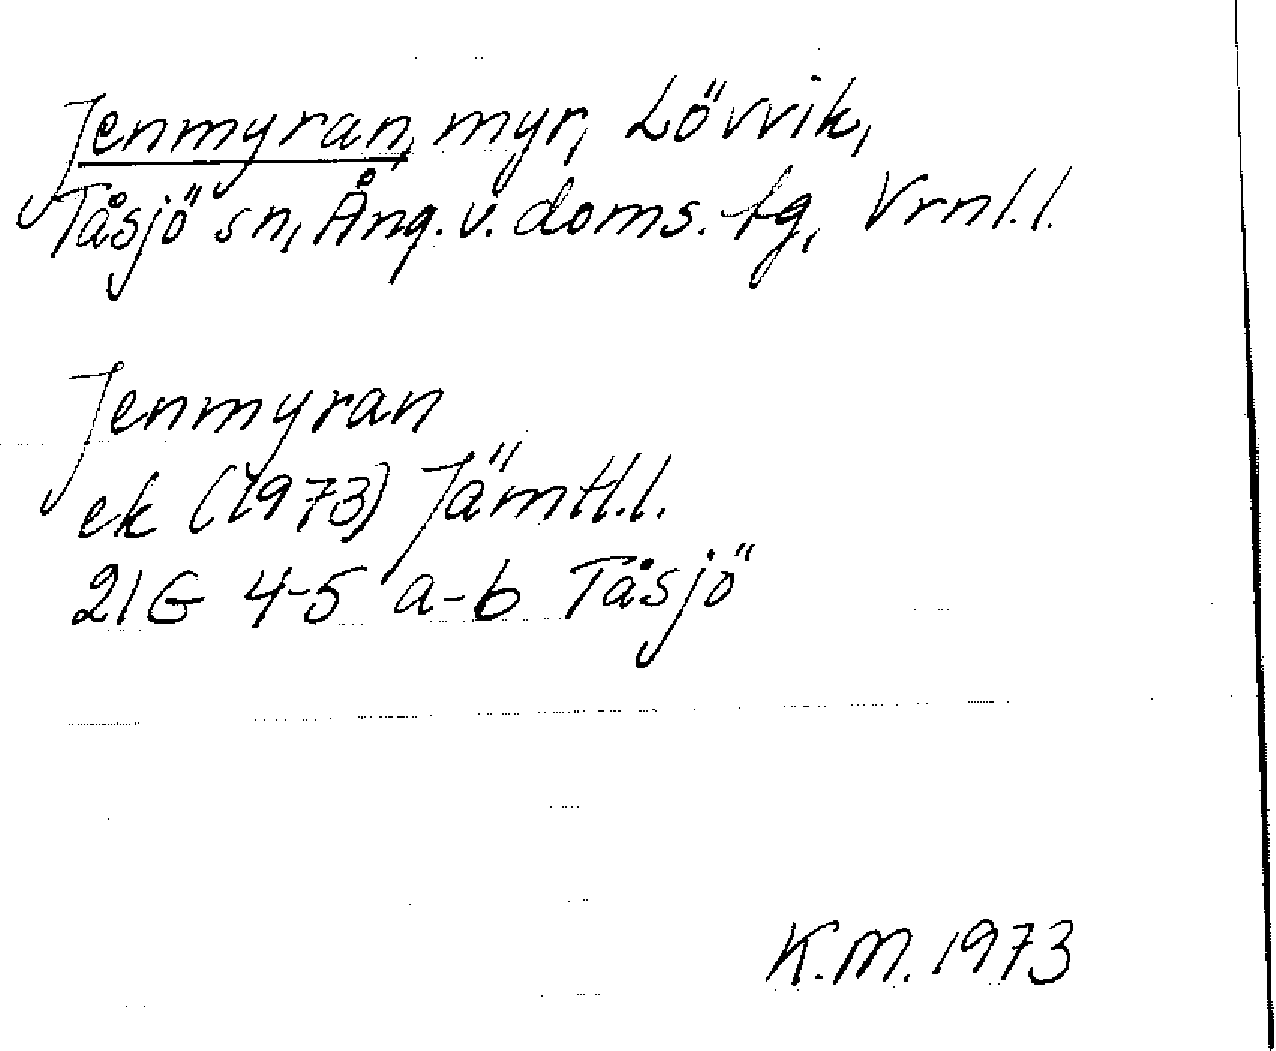 Jenmyran, myr, Lövvik,
Tåsjö sn, Ång. v. doms. tg, Vrnl. l.
Jenmyran
ek (1973) Jämtl. l.
21G 4-5 a-b Tåsjö
K.M. 1973